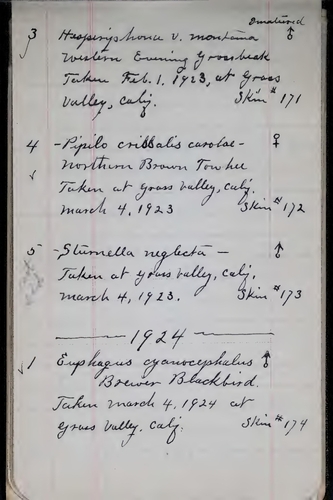 3 Hesperiphona v. montana ♂
Western Evening Grosbeak
Taken Feb. 1, 1923, at Grass
Valley, Calif. Skin # 171
4 - Pipilo crissalis carolae - ♀
Northern Brown Towhee
✓ Taken at Grass Valley, Calif.
March 4, 1923 Skin # 172
5 - Sturnella neglecta - ♂
Taken at Grass Valley, Calif,
March 4, 1923. Skin # 173
1924
✓1 Euphagus cyanocephalus ♂
Brewer Blackbird.
Taken March 4, 1924 at
Grass Valley, Calif. Skin # 174